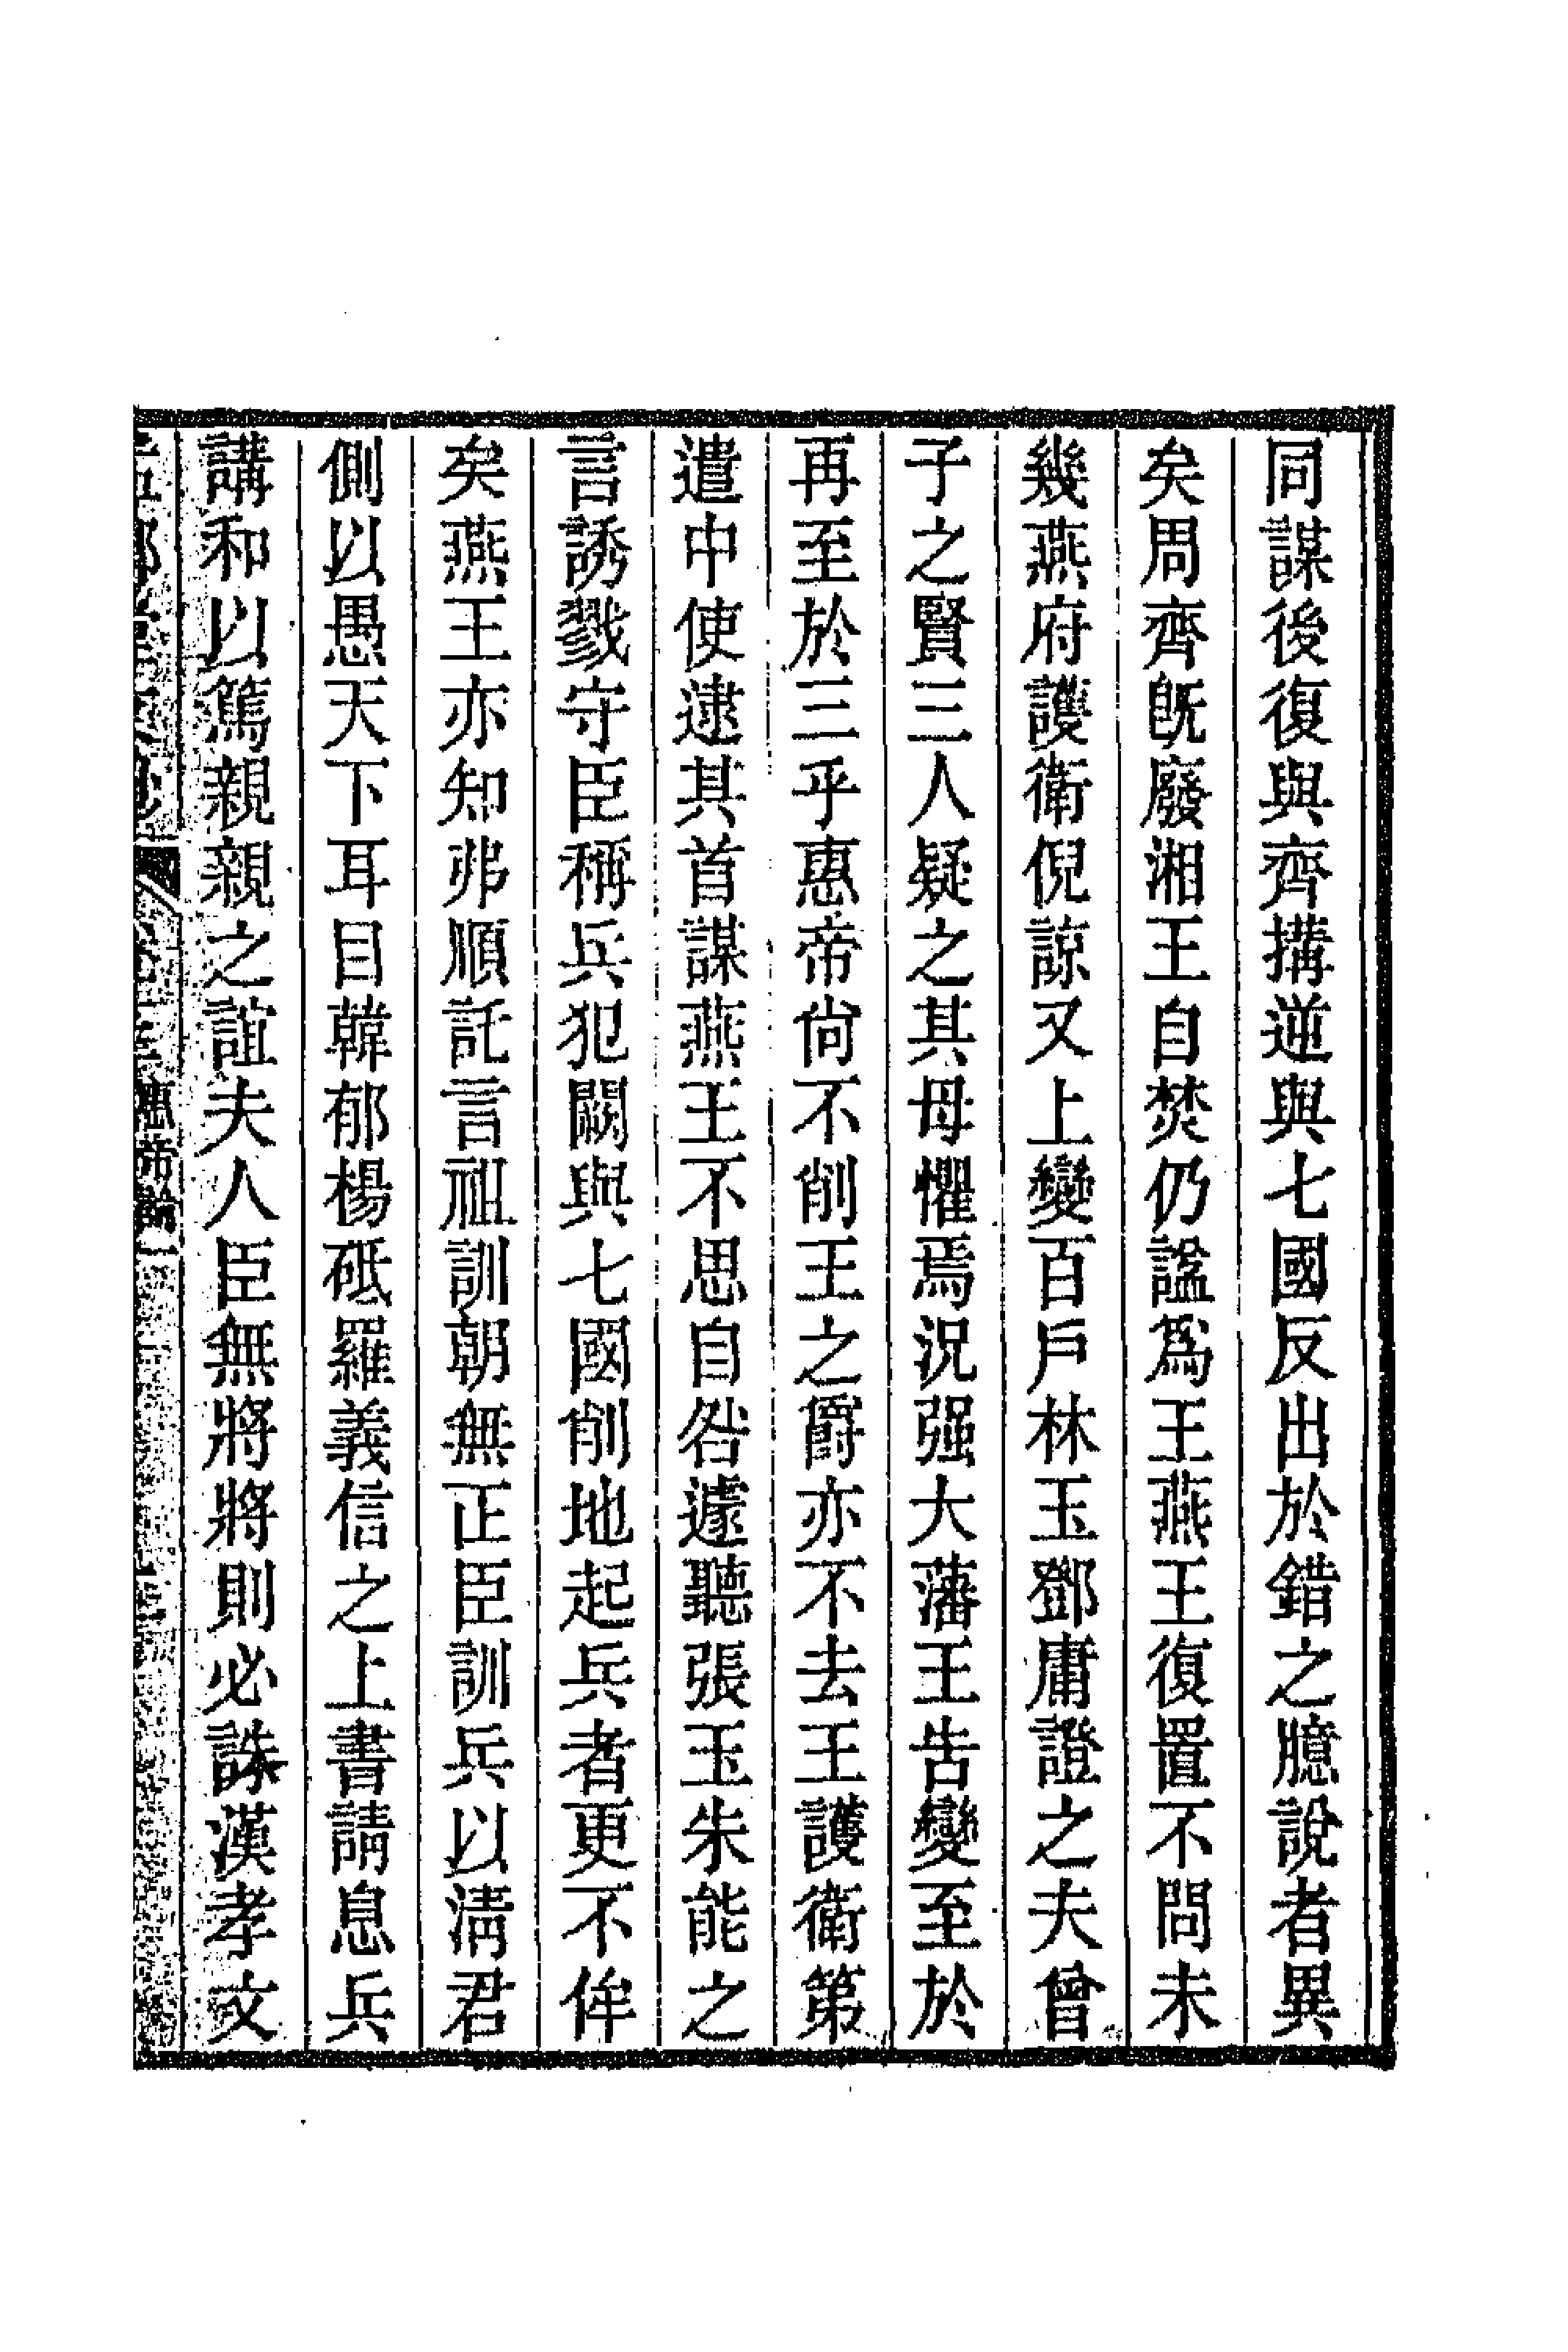 同謀後復與齊搆逆與七國反出於錯之臆說者異
矣周齊旣廢湘王自焚仍謚爲王燕王復置不問未
幾燕府護衛倪諒又上變百戶林玉鄧庸證之夫曾
子之賢三人疑之其母懼焉況强大藩王告變至於
再至於三乎惠帝尙不削王之爵亦不去王護衛第
遣中使逮其首謀燕王不思自咎遽聽張玉朱能之
言誘戮守臣稱兵犯闕與七國削地起兵者更不侔
矣燕王亦知弗順託言祖訓朝無正臣訓兵以淸君
側以愚天下耳目韓郁楊砥羅義信之上書請息兵
講和以篤親親之誼夫人臣無將將則必誅漢孝文
惠帝論